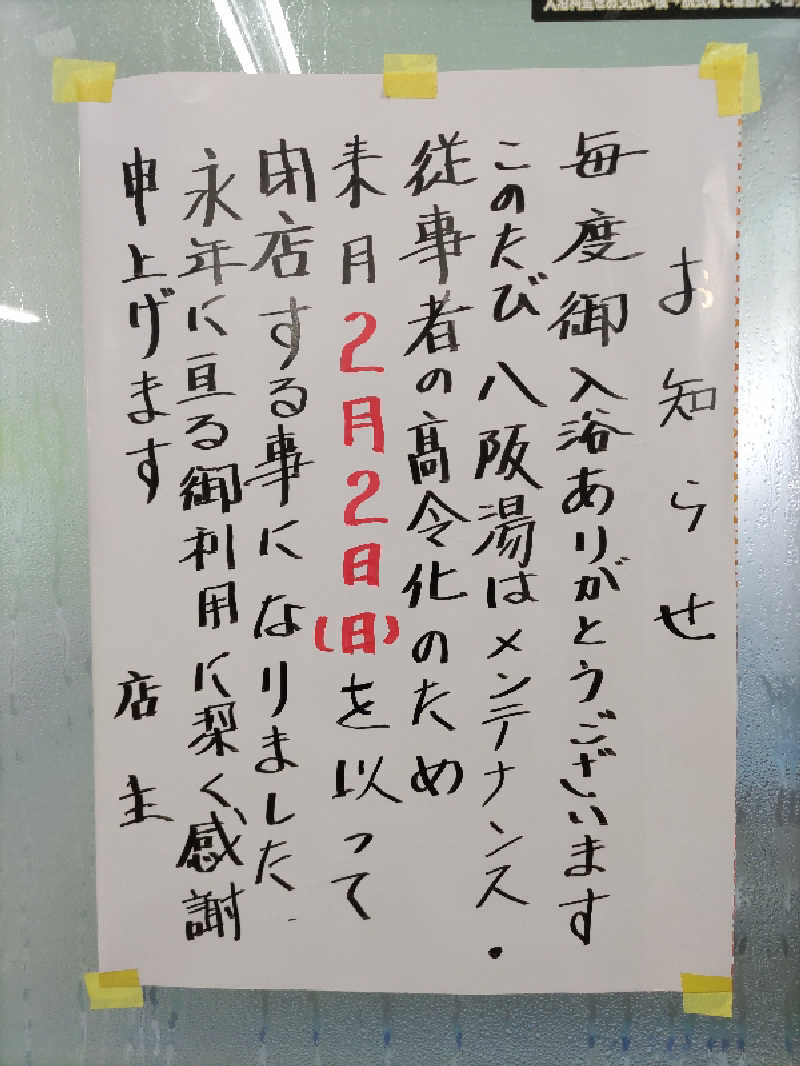 お知らせ
毎度御入浴ありがとうございます
このたび八阪湯はメンテナンス・
従事者の高令化のため
来月2月2日(日)を以って
閉店する事になりました
永年に亘る御利用に深く感謝
申上げます
店主